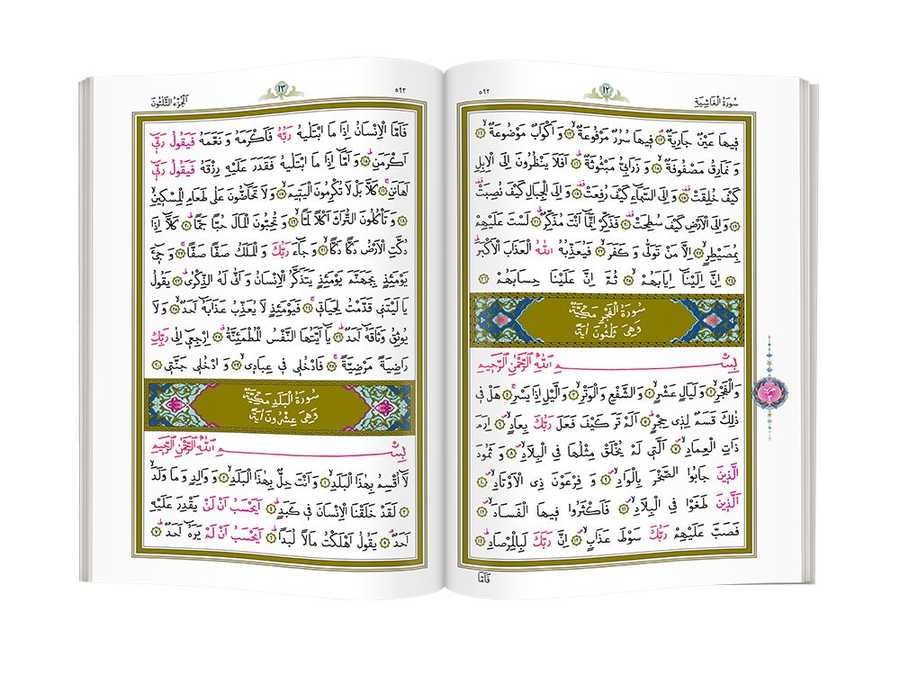 سُورَةُ الْغَاشِيَةِ ١٢ ٥٩٢
فِيهَا عَيْنٌ جَارِيَةٌ ﴿١٢﴾ فِيهَا سُرُرٌ مَرْفُوعَةٌ ﴿١٣﴾ وَاَكْوَابٌ مَوْضُوعَةٌ ﴿١٤﴾
وَنَمَارِقُ مَصْفُوفَةٌ ﴿١٥﴾ وَزَرَابِيُّ مَبْثُوثَةٌ ﴿١٦﴾ اَفَلَا يَنْظُرُونَ اِلَى الْاِبِلِ
كَيْفَ خُلِقَتْ ﴿١٧﴾ وَاِلَى السَّمَاءِ كَيْفَ رُفِعَتْ ﴿١٨﴾ وَاِلَى الْجِبَالِ كَيْفَ نُصِبَتْ
﴿١٩﴾ وَاِلَى الْاَرْضِ كَيْفَ سُطِحَتْ ﴿٢٠﴾ فَذَكِّرْ اِنَّمَا اَنْتَ مُذَكِّرٌ ﴿٢١﴾ لَسْتَ عَلَيْهِمْ
بِمُصَيْطِرٍ ﴿٢٢﴾ اِلَّا مَنْ تَوَلّٰى وَكَفَرَ ﴿٢٣﴾ فَيُعَذِّبُهُ اللّٰهُ الْعَذَابَ الْاَكْبَرَ
﴿٢٤﴾ اِنَّ اِلَيْنَا اِيَابَهُمْ ﴿٢٥﴾ ثُمَّ اِنَّ عَلَيْنَا حِسَابَهُمْ ﴿٢٦﴾
سُورَةُ الْفَجْرِ مَكِّيَّةٌ
وَهِيَ ثَلٰثُونَ اٰيَةً
بِسْمِ اللّٰهِ الرَّحْمٰنِ الرَّحِيمِ
وَالْفَجْرِ ﴿١﴾ وَلَيَالٍ عَشْرٍ ﴿٢﴾ وَالشَّفْعِ وَالْوَتْرِ ﴿٣﴾ وَالَّيْلِ اِذَا يَسْرِ ﴿٤﴾ هَلْ فِي
ذٰلِكَ قَسَمٌ لِذِي حِجْرٍ ﴿٥﴾ اَلَمْ تَرَ كَيْفَ فَعَلَ رَبُّكَ بِعَادٍ ﴿٦﴾ اِرَمَ
ذَاتِ الْعِمَادِ ﴿٧﴾ اَلَّتِي لَمْ يُخْلَقْ مِثْلُهَا فِي الْبِلَادِ ﴿٨﴾ وَثَمُودَ
الَّذِينَ جَابُوا الصَّخْرَ بِالْوَادِ ﴿٩﴾ وَفِرْعَوْنَ ذِي الْاَوْتَادِ ﴿١٠﴾
اَلَّذِينَ طَغَوْا فِي الْبِلَادِ ﴿١١﴾ فَاَكْثَرُوا فِيهَا الْفَسَادَ ﴿١٢﴾
فَصَبَّ عَلَيْهِمْ رَبُّكَ سَوْطَ عَذَابٍ ﴿١٣﴾ اِنَّ رَبَّكَ لَبِالْمِرْصَادِ ﴿١٤﴾
فَاَمَّا
٥٩٣ ١٣ اَلْجُزْءُ الثَّلٰثُونَ
فَاَمَّا الْاِنْسَانُ اِذَا مَا ابْتَلٰيهُ رَبُّهُ فَاَكْرَمَهُ وَنَعَّمَهُ فَيَقُولُ رَبِّي
اَكْرَمَنِ ﴿١٥﴾ وَاَمَّا اِذَا مَا ابْتَلٰيهُ فَقَدَرَ عَلَيْهِ رِزْقَهُ فَيَقُولُ رَبِّي
اَهَانَنِ ﴿١٦﴾ كَلَّا بَلْ لَا تُكْرِمُونَ الْيَتِيمَ ﴿١٧﴾ وَلَا تَحَاضُّونَ عَلٰى طَعَامِ الْمِسْكِينِ
﴿١٨﴾ وَتَأْكُلُونَ التُّرَاثَ اَكْلًا لَمًّا ﴿١٩﴾ وَتُحِبُّونَ الْمَالَ حُبًّا جَمًّا ﴿٢٠﴾ كَلَّا اِذَا
دُكَّتِ الْاَرْضُ دَكًّا دَكًّا ﴿٢١﴾ وَجَاءَ رَبُّكَ وَالْمَلَكُ صَفًّا صَفًّا ﴿٢٢﴾ وَجِيءَ
يَوْمَئِذٍ بِجَهَنَّمَ يَوْمَئِذٍ يَتَذَكَّرُ الْاِنْسَانُ وَاَنّٰى لَهُ الذِّكْرٰى ﴿٢٣﴾ يَقُولُ
يَا لَيْتَنِي قَدَّمْتُ لِحَيَاتِي ﴿٢٤﴾ فَيَوْمَئِذٍ لَا يُعَذِّبُ عَذَابَهُ اَحَدٌ ﴿٢٥﴾ وَلَا
يُوثِقُ وَثَاقَهُ اَحَدٌ ﴿٢٦﴾ يَا اَيَّتُهَا النَّفْسُ الْمُطْمَئِنَّةُ ﴿٢٧﴾ اِرْجِعِي اِلٰى رَبِّكِ
رَاضِيَةً مَرْضِيَّةً ﴿٢٨﴾ فَادْخُلِي فِي عِبَادِي ﴿٢٩﴾ وَادْخُلِي جَنَّتِي ﴿٣٠﴾
سُورَةُ الْبَلَدِ مَكِّيَّةٌ
وَهِيَ عِشْرُونَ اٰيَةً
بِسْمِ اللّٰهِ الرَّحْمٰنِ الرَّحِيمِ
لَا اُقْسِمُ بِهٰذَا الْبَلَدِ ﴿١﴾ وَاَنْتَ حِلٌّ بِهٰذَا الْبَلَدِ ﴿٢﴾ وَوَالِدٍ وَمَا وَلَدَ
﴿٣﴾ لَقَدْ خَلَقْنَا الْاِنْسَانَ فِي كَبَدٍ ﴿٤﴾ اَيَحْسَبُ اَنْ لَنْ يَقْدِرَ عَلَيْهِ
اَحَدٌ ﴿٥﴾ يَقُولُ اَهْلَكْتُ مَالًا لُبَدًا ﴿٦﴾ اَيَحْسَبُ اَنْ لَمْ يَرَهُ اَحَدٌ ﴿٧﴾